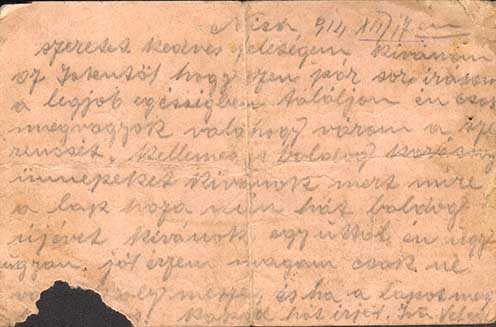 Nisch 914 XII/17 én
szeretet kedves feleségem kivánom
az Istentöl hogy ezen pár sor irásom
a legjob egésségben találjon én csak
megvagyok valahogy várom a sze
rencsét. Kellemes és boldog karácsony
innepeket kivánok mert mire
a lap haza mén hát boldog
újévet kivánok egyuttal én
ugyan jól érzem magam csak ne
és ha a lapot meg
kapod hát irjál.